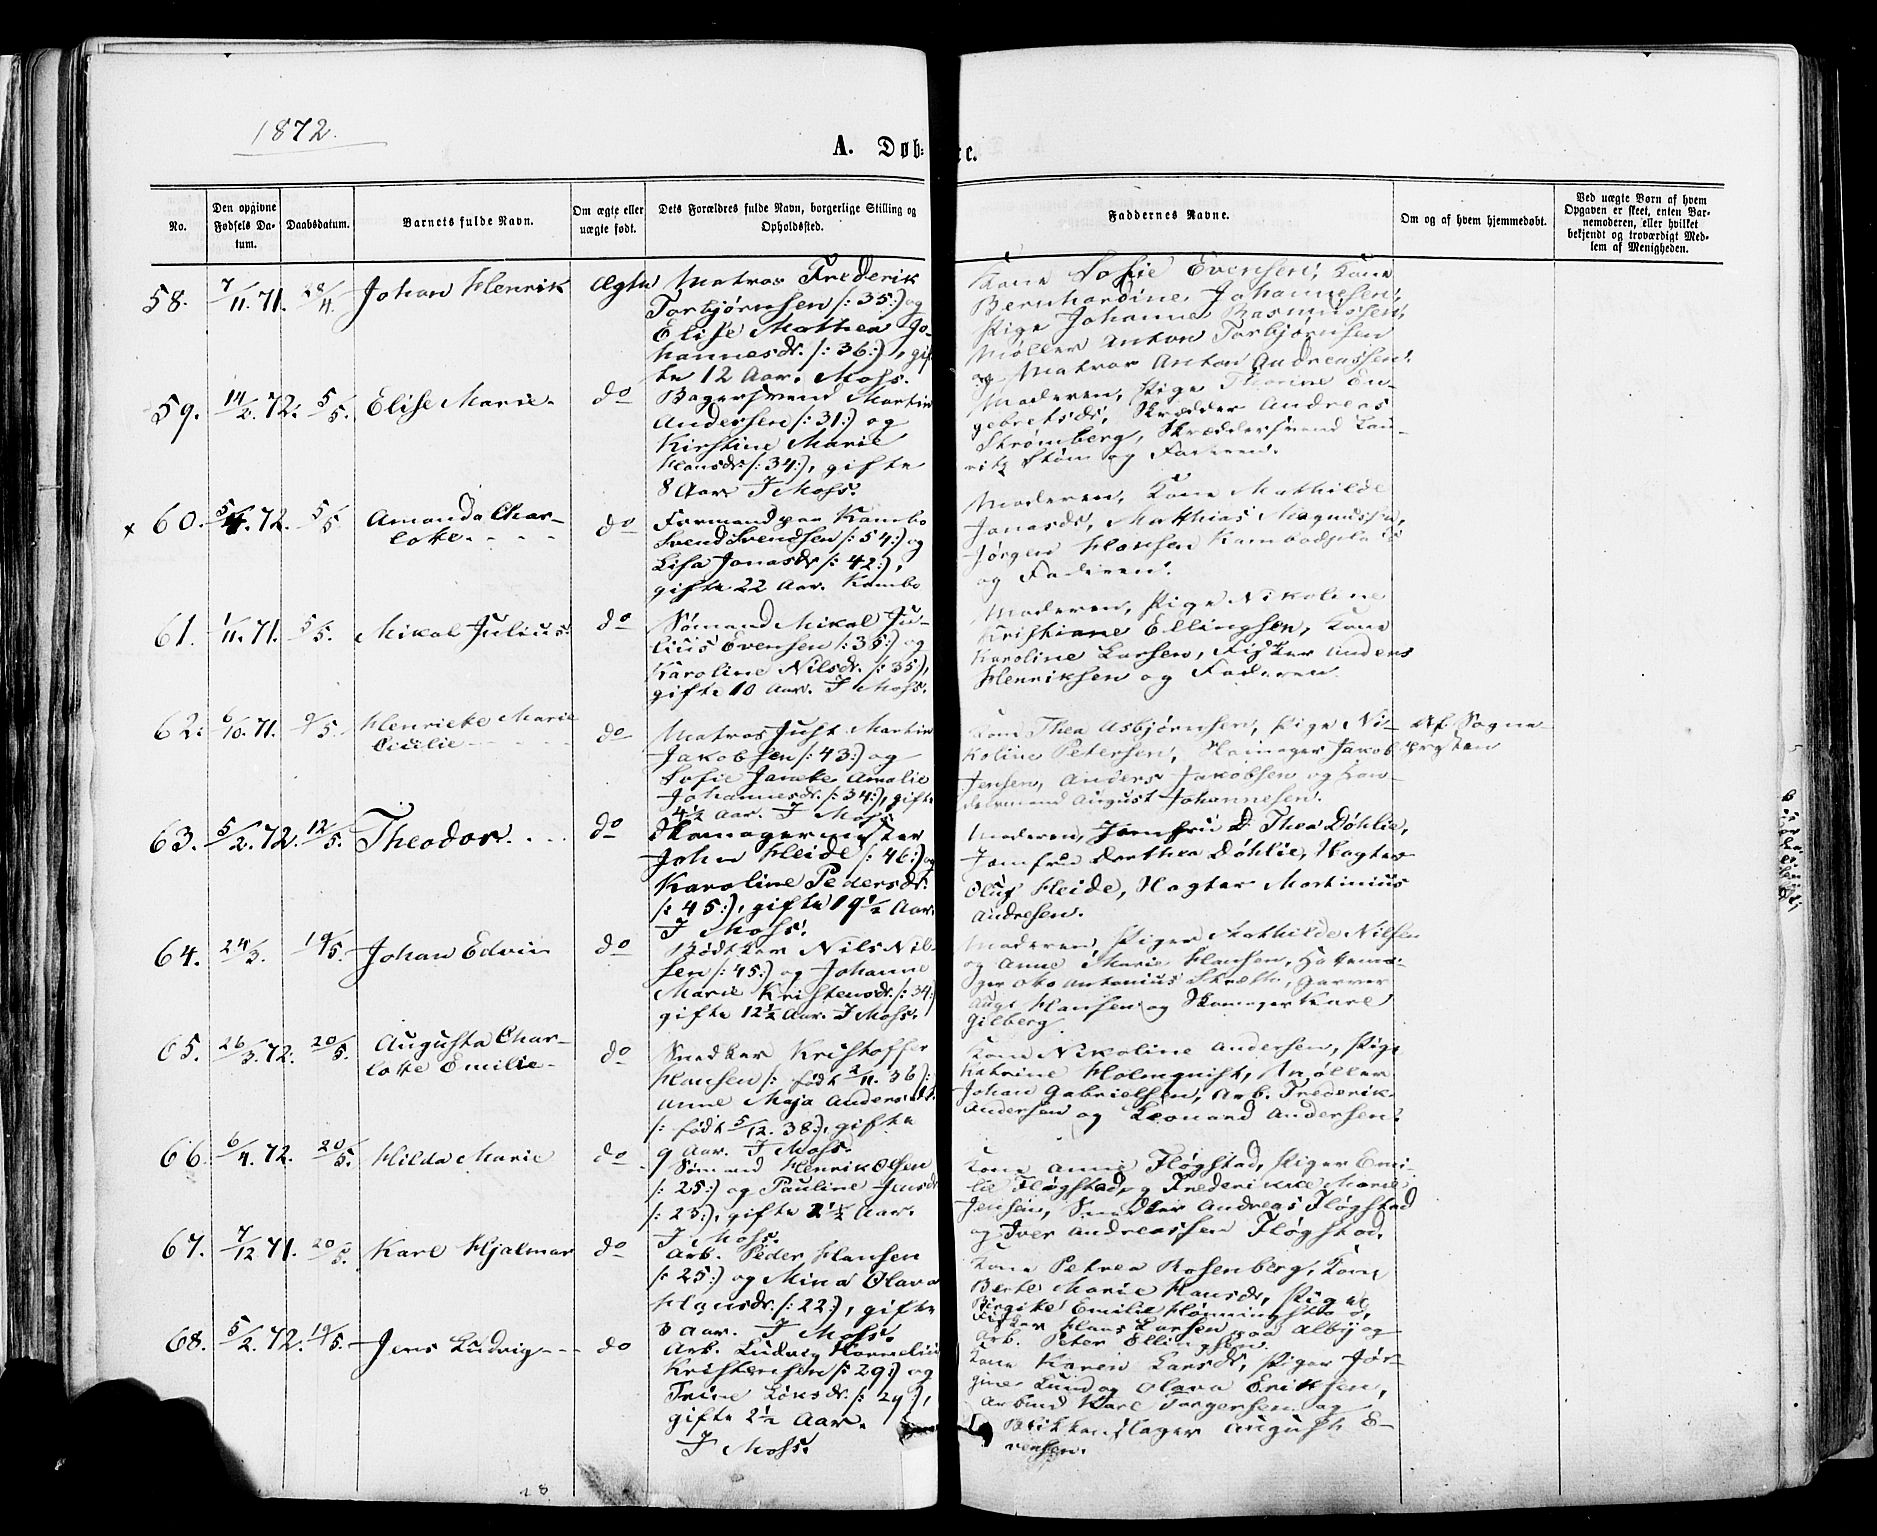 1872.
A. Døb:
c.
No.
Den opgivne Fødsels Da-
tum.
Daabsdatum.
Barnets fulde Navn.
Om ægte eller
uægte født.
Dets Forældres fulde Navn, borgerlige Stilling og
Opholdssted.
Faddernes Navne.
Om og af hvem hjemmedøbt.
Ved uægte Børn af hvem
Opgaven er skeet, enten Bar-
nemoderen, eller hvilket
bekjendt og troværdigt Med-
lem af Menigheden.
58. 7/11. 71. 28/4. Johan Henrik Ægte
Matros Frederik
Torbjørnsen /: 35:) og
Elise Mathea Jo-
hannesdr. /: 36:), gif-
te 12 Aar. Moss.
Kone Sofie Evensen, Kone
Bernhardine Johannesen,
Pige Johanne Rasmussen,
Møller Anton Torbjørnsen
og Matros Anton Andreassen.
59. 14/2. 72. 5/5. Elise Marie. do
Bagersvend Martin
Andersen /: 31:) og
Kirstine Marie
Hansdr /: 34:), gifte
8 Aar I Moss.
Moderen, Pige Thorine En-
gebretsdr, Skrædder Andreas
Strømberg, Skræddersvend Lau-
ritz Støm og Faderen.
x 60. 5/4. 72. 5/5 Amanda Char-
lotte. do
Formand paa Kambo
Svend Svendsen /: 54:) og
Lisa Jonasdr /: 42:),
gifte 22 Aar. Kambo
Moderen, Kone Mathilde
Jonasdr, Matthias Magnussen,
Jørgen Hansen Kambodplads
og Faderen.
61. 1/11. 71. 5/5. Mikal Julius. do
Sømand Mikal Ju-
lius Evensen /: 35:) og
Karoline Nilsdr. /: 35),
gifte 10 Aar. I Moss.
Moderen, Pige Nikoline
Kristiane Ellingsen, Kone
Karoline Larsen, Fisker Anders
Henriksen og Faderen.
62. 6/10. 71. 9/5. Henriette Marie
Cicilie do
Matros Just Martin
Jakobsen /: 43:) og
Sofie Janeke Amalie
Johannesdr. /: 34:), gifte
4½ Aar. I Moss
Kone Thea Asbjørnsen, Pige Ni-
koline Petersen, Skomager Jakob
Jensen, Anders Jakobsen og
August Johannesen.
Af Sogne
præsten
63. 5/2. 72. 12/5. Theodor. do
Skomagermester
John Heide /: 46:) og
Karoline Pedersdr.
/: 45:), gifte 19½ Aar.
I Moss.
Moderen, Jomfru D. Thea Döhlie,
Jomfru Dorthea Döhlie,
Oluf Heide, Martinius
Andresen.
64. 24/3. 19/5. Johan Edvin do
Bødtker Nils Nil-
sen /: 45:) og Johanne
Marie Kristensdr. /: 34:)
gifte 12½ Aar. I Moss.
Moderen, Piger Mathilde Nilsen
og Anne Marie Hansen,
Antonius Garver
Aug. Hansen og Skomager Karl
Gilberg.
65. 26/3. 72. 20/5. Augusta Char-
lotte Emilie. do
Snedker Kristoffer
Hansen /: født 2/11. 36):
Anne Maja Andersdr.
/: født 5/12. 38:), gifte
9 Aar. I Moss.
Kone Nikoline Andersen, Pige
Katrine Holmquist, Møller
Johan Gabrielsen, Arb. Frederik
Andersen og Leonard Andersen.
66. 6/4. 72. 20/5. Hilda Marie do
Sømand Henrik Olsen
/: 25:) og Pauline Jensdr
/: 23:), gifte 2½ Aar.
I Moss.
Kone Anne Fløgstad, Piger Emi-
lie Fløgstad, og Frederikke Marie
Jensen, Snedker Andreas Fløgstad
og Iver Andreassen Fløgstad.
67. 7/12 71. 20/5. Karl Hjalmar do
Arb. Peder Hansen
/: 25:) og Mina Olava
Hansdr. /: 22:), gifte
3 Aar. I Moss.
Kone Petrea Rosenberg, Kone
Berte Marie Hansdr, Pige
Birgitte Emilie
Fisker Hans Larsen paa Alby og
Arb. Peter Ellingsen.
68. 5/2. 72. 19/5. Jens Ludvig do
Arb. Ludvig Kornelius
Kristensen /: 29:) og
Trine Larsdr. /: 29:),
gifte 2½ Aar.
I Moss.
Kone Karen Larsdr, Piger Jør-
gine Lund og Olava Eriksen,
Arbmd Karl Torgersen og
Blikkenslager August E-
vensen.